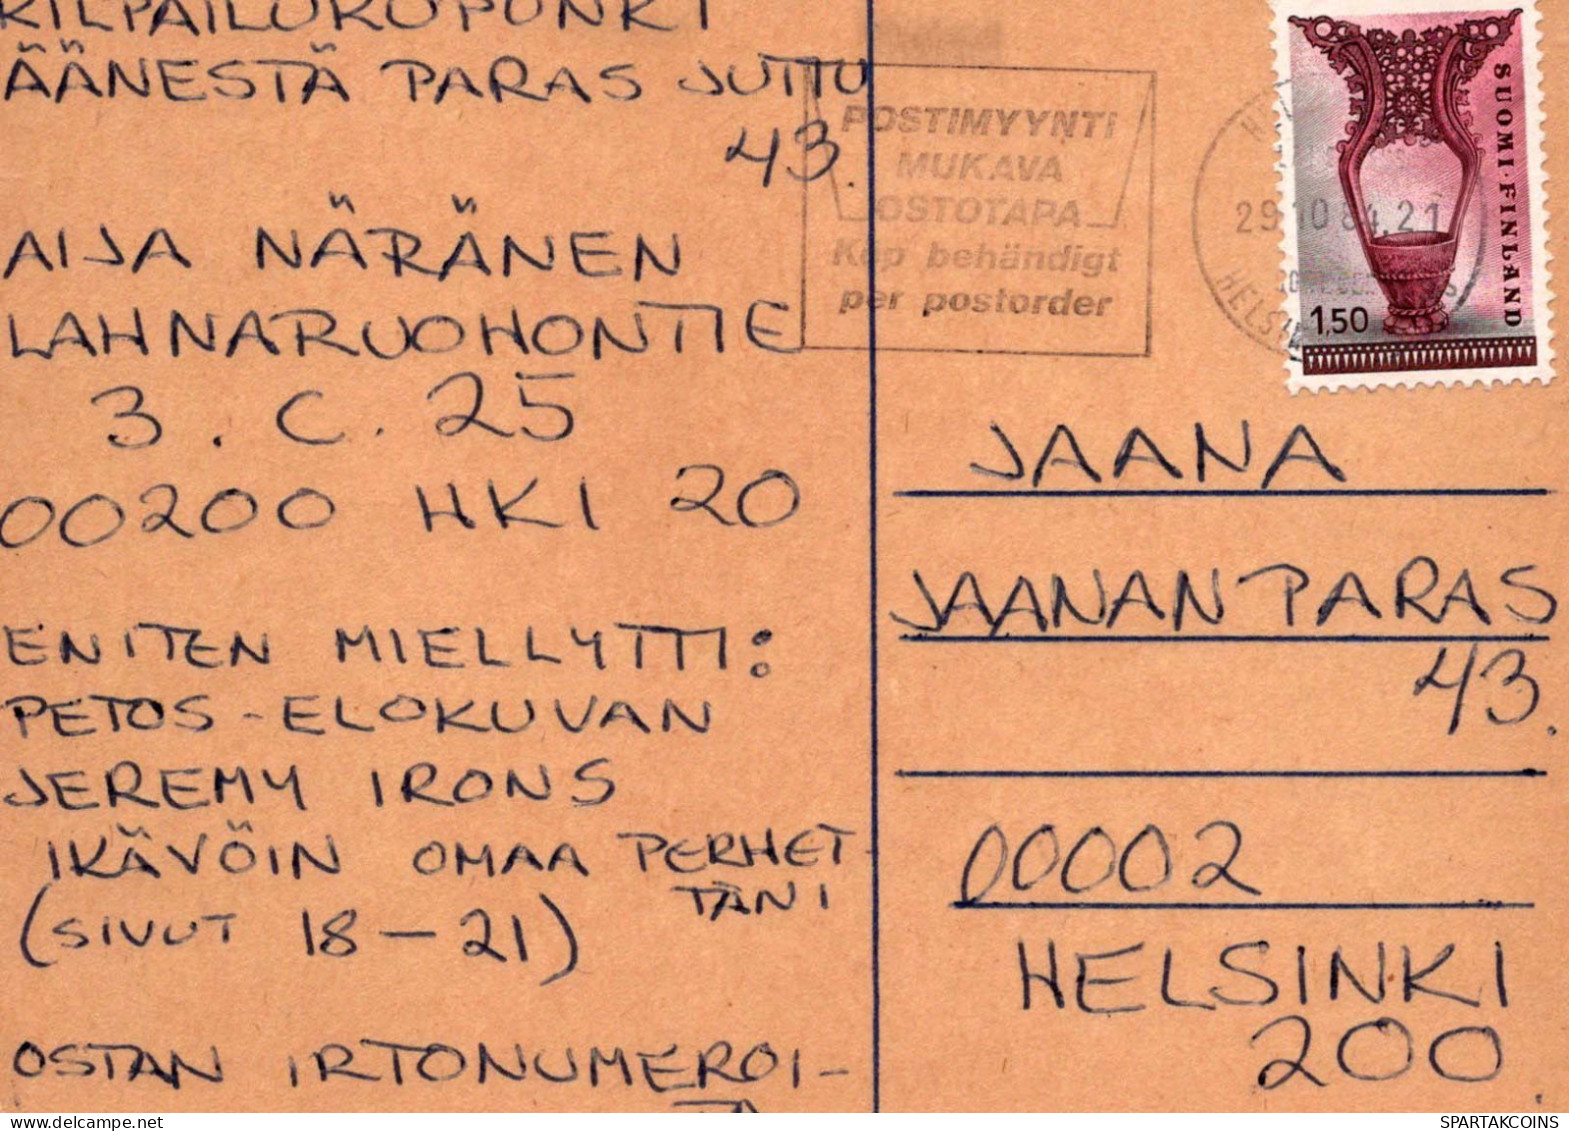 KILPAILUKUPONKI
ÄÄNESTÄ PARAS JUTTU
43.
AIJA NÄRÄNEN
LAHNARUOHONTIE
3. C. 25
00200 HKI 20
ENITEN MIELLYTTI:
PETOS-ELOKUVAN
JEREMY IRONS
IKÄVÖIN OMAA PERHET-
TÄNI
(SIVUT 18-21)
OSTAN IRTONUMEROI-
TA
POSTIMYYNTI
MUKAVA
OSTOTAPA
Köp behändigt
per postorder
29.10.84.21
SUOMI·FINLAND
1,50
JAANA
JAANAN PARAS
43.
00002
HELSINKI
200
SPARTAKCOINS